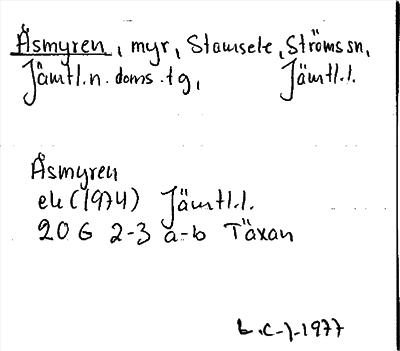 Åsmyren, myr, Stamsele, Ströms sn,
Jämtl.n. doms.tg, Jämtl.l.
Åsmyren
ek (1974) Jämtl.l.
20 G 2-3 a-b Täxan
1977